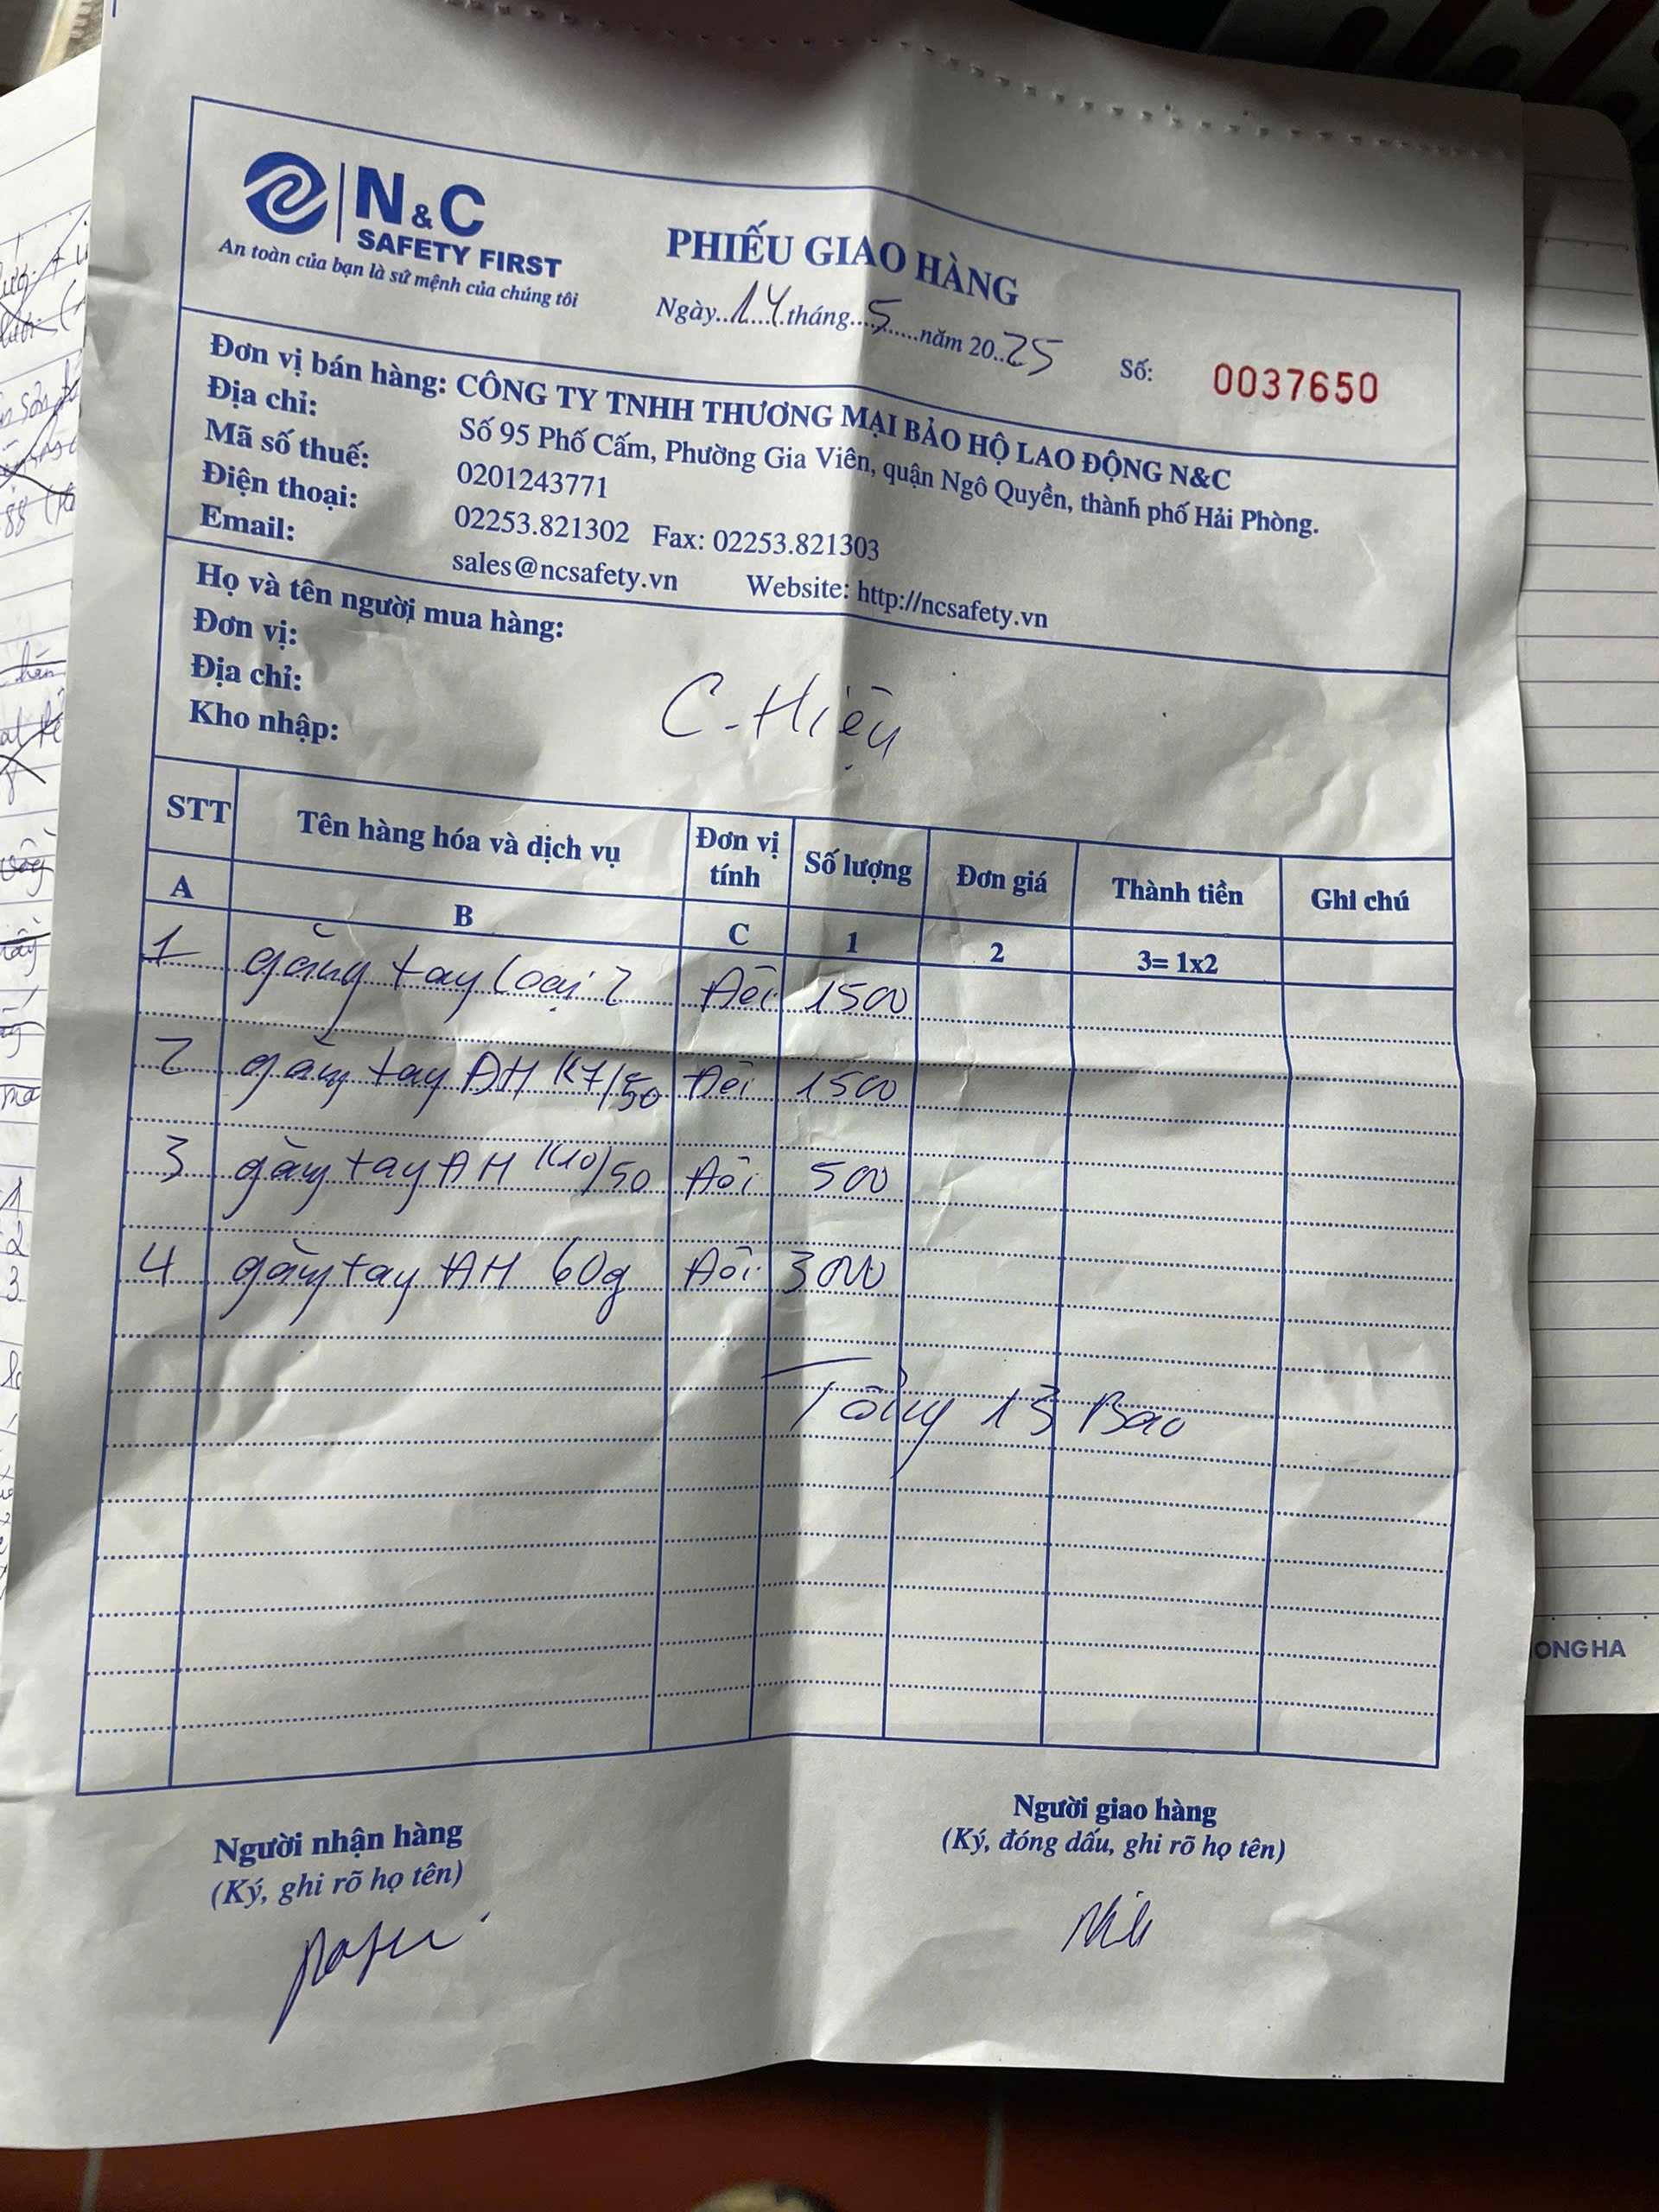 N&C
SAFETY FIRST
An toàn của bạn là sứ mệnh của chúng tôi
PHIẾU GIAO HÀNG
Ngày..14..tháng..5..năm 20..25
Số: 0037650
Đơn vị bán hàng: CÔNG TY TNHH THƯƠNG MẠI BẢO HỘ LAO ĐỘNG N&C
Địa chỉ: Số 95 Phố Cấm, Phường Gia Viên, quận Ngô Quyền, thành phố Hải Phòng.
Mã số thuế: 0201243771
Điện thoại: 02253.821302 Fax: 02253.821303
Email: sales@ncsafety.vn Website: http://ncsafety.vn
Họ và tên người mua hàng:
Đơn vị:
Địa chỉ: C. Hiệu
Kho nhập:
STT Tên hàng hóa và dịch vụ Đơn vị tính Số lượng Đơn giá Thành tiền Ghi chú
A B C 1 2 3= 1x2
1 găng tay loại 2 Đôi 1500
2 găng tay ĐH K7/50 Đôi 1500
3 găng tay ĐH K10/50 Đôi 500
4 găng tay ĐH 60g Đôi 3000
Tổng 13 Bao
Người nhận hàng
(Ký, ghi rõ họ tên)
Người giao hàng
(Ký, đóng dấu, ghi rõ họ tên)
ONG HA